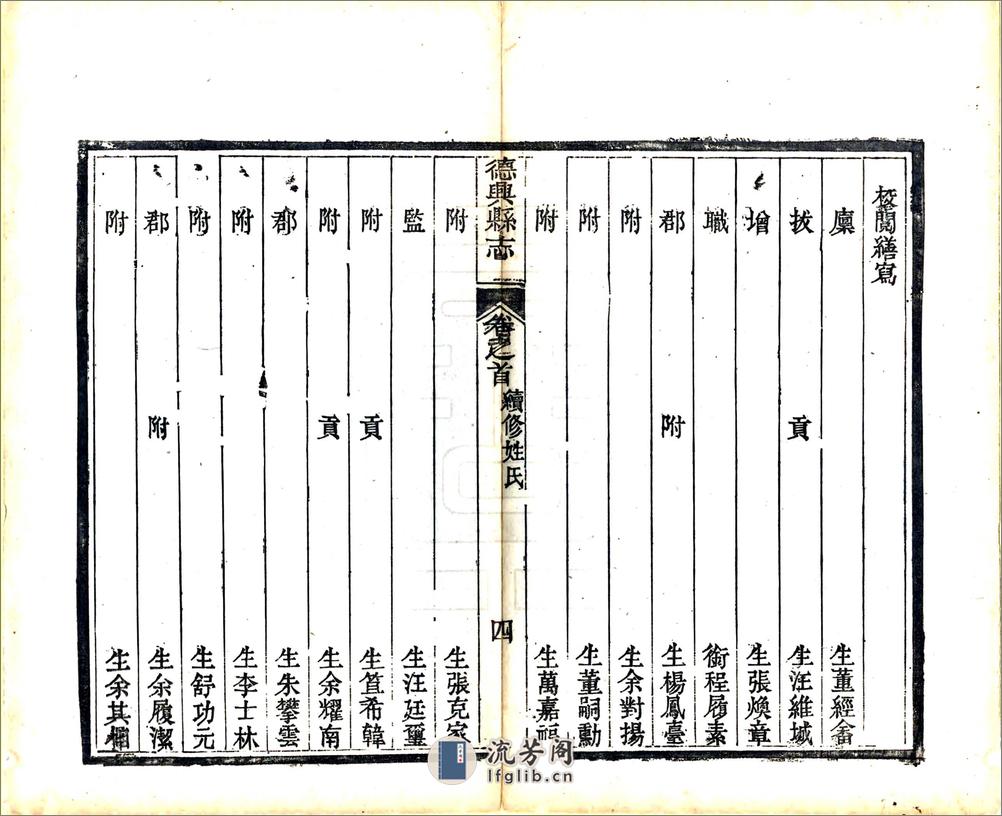 校閱繕寫
廩生董經畬
拔貢生汪維城
增生張煥章
職銜程履素
郡附生楊鳳臺
附生余對揚
附生董嗣勳
附生萬嘉
德興縣志
卷之首
續修姓氏
四
附生張克家
監生汪廷璽
附貢生笪希韓
附貢生余耀南
郡生朱攀雲
附生李士林
附生舒功元
郡附生余履潔
附生余其
流芳阁
lfglib.cn